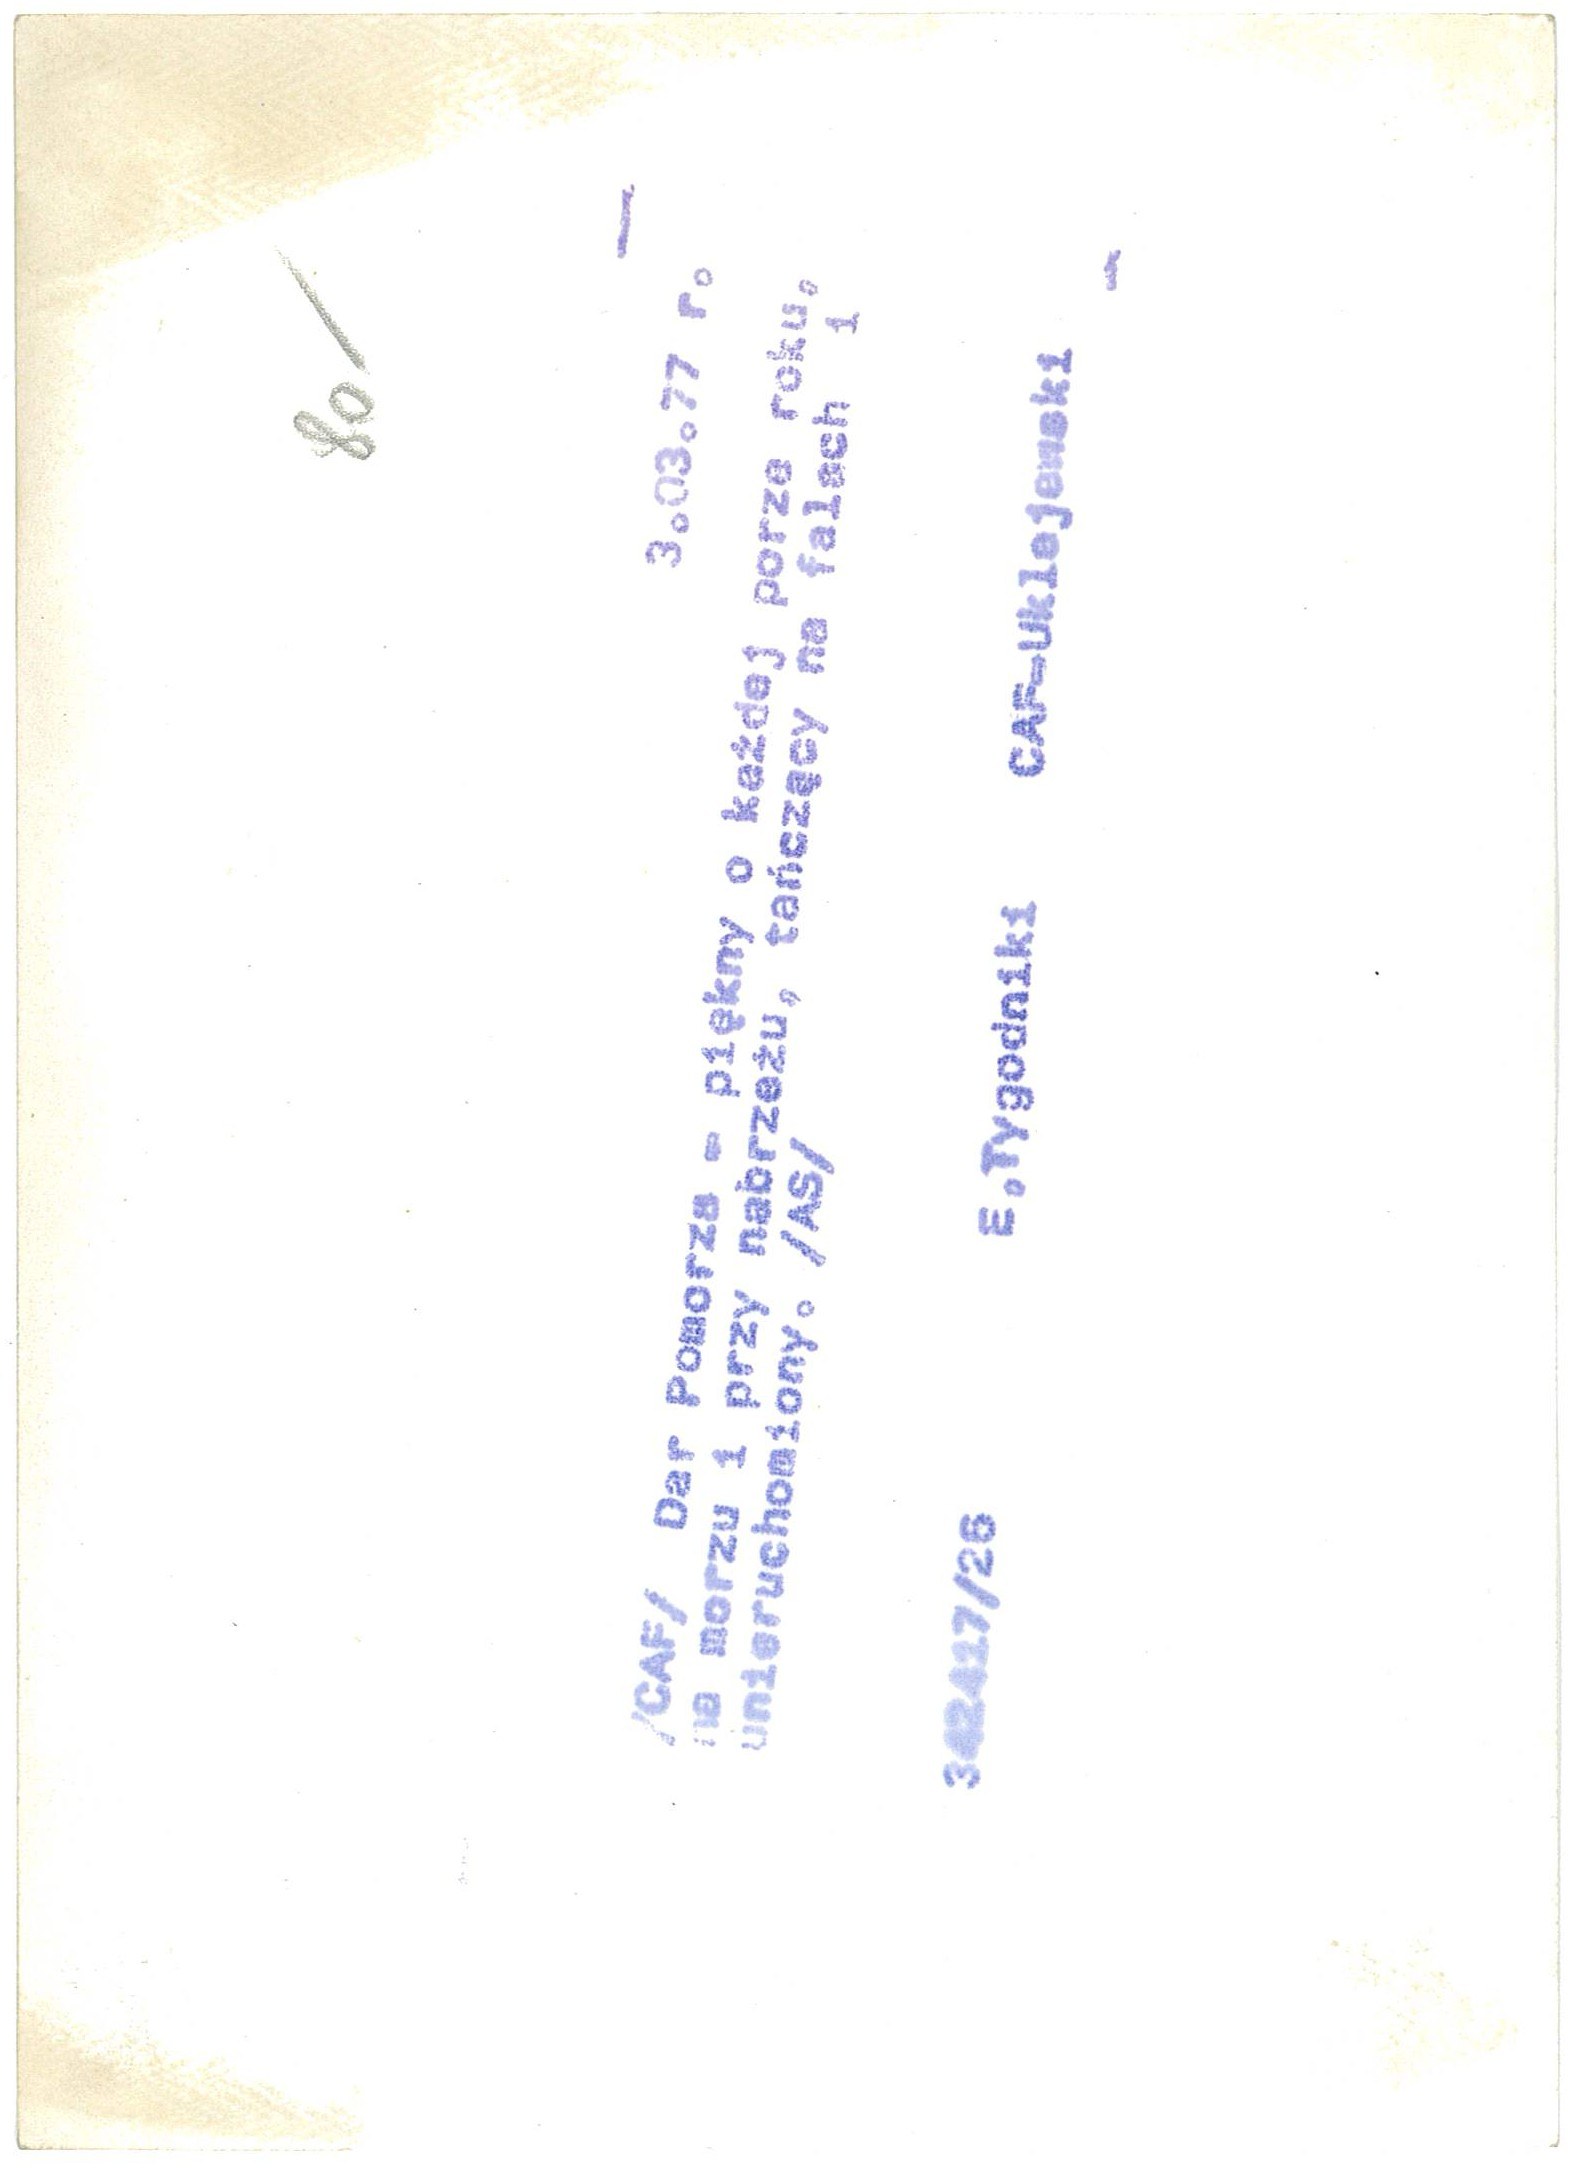 80/
3.03.77 r.
/CAF/ Dar Pomorza - piękny o każdej porze roku,
na morzu i przy nabrzeżu, tańczący na falach i
unieruchomiony. /AS/
342417/26 E.Tygodniki CAF-Uklejewski